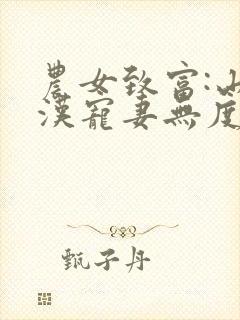 農女致富:山
漢寵妻無度
甄子丹